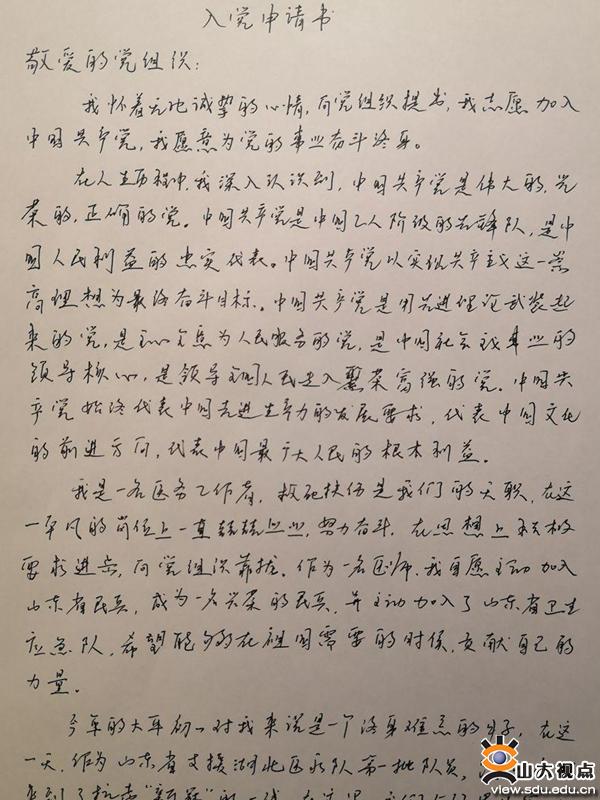 入党申请书
敬爱的党组织：
我怀着无比诚挚的心情，向党组织提出，我志愿加入
中国共产党，我愿意为党的事业奋斗终身。
在人生历程中，我深入认识到，中国共产党是伟大的，光
荣的，正确的党。中国共产党是中国工人阶级的先锋队，是中
国人民利益的忠实代表。中国共产党以实现共产主义这一崇
高理想为最终奋斗目标。中国共产党是用先进理论武装起
来的党，是全心全意为人民服务的党，是中国社会主义事业的
领导核心，是领导全国人民走入繁荣富强的党。中国共
产党始终代表中国先进生产力的发展要求，代表中国文化
的前进方向，代表中国最广大人民的根本利益。
我是一名医务工作者，救死扶伤是我们的天职，在这
一平凡的岗位上一直兢兢业业，努力奋斗，在思想上积极
要求进步，向党组织靠拢。作为一名医师，我自愿主动加入
山东省民兵，成为一名光荣的民兵，并主动加入了山东省卫生
应急队，希望能够在祖国需要的时候，贡献自己的
力量。
今年的大年初一对我来说是一个终身难忘的日子，在这
一天，作为山东省支援湖北医疗队第一批队员，
来到了抗击“新冠”的一线，在这里
山大视点
www.view.sdu.edu.cn